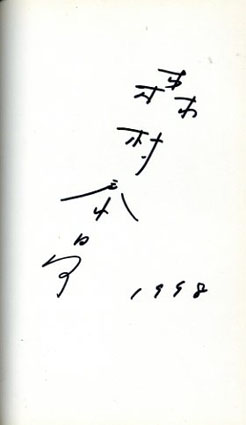 森村泰昌
1998